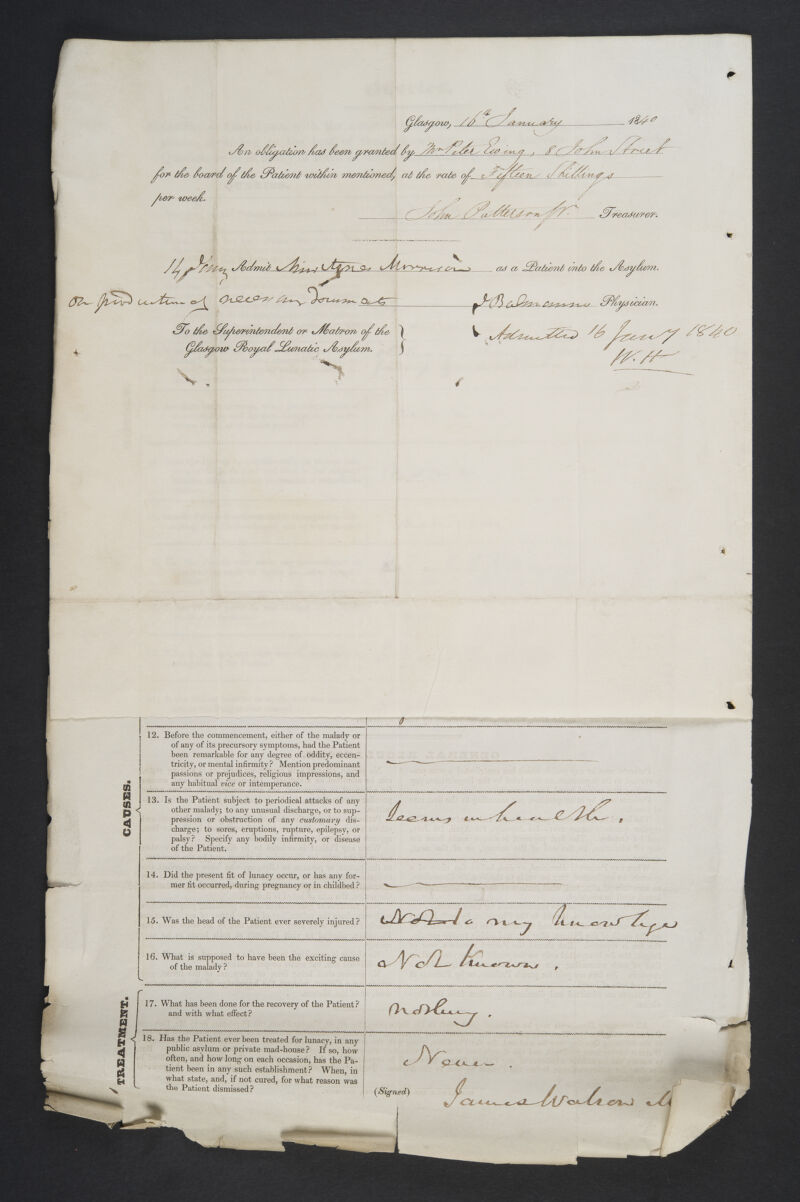 Glasgow, 16th January 1840
An obligation has been granted by Mr Peter Ewing, 8 John Street
for the board of the Patient within mentioned, at the rate of Fifteen Shillings
per week.
John Patterson Jr. Treasurer.
14 Jany Admit Miss Agnes Morrison as a Patient into the Asylum.
on production of necessary documents J Balmanno Physician.
To the Superintendent or Matron of the
Glasgow Royal Lunatic Asylum.
Admitted 16 Jany 1840
W.H
CAUSES.
12. Before the commencement, either of the malady or
of any of its precursory symptoms, had the Patient
been remarkable for any degree of oddity, eccen-
tricity, or mental infirmity? Mention predominant
passions or prejudices, religious impressions, and
any habitual vice or intemperance.
13. Is the Patient subject to periodical attacks of any
other malady; to any unusual discharge, or to sup-
pression or obstruction of any customary dis-
charge; to sores, eruptions, rupture, epilepsy, or
palsy? Specify any bodily infirmity, or disease
of the Patient.
Seems in health.
14. Did the present fit of lunacy occur, or has any for-
mer fit occurred, during pregnancy or in childbed?
15. Was the head of the Patient ever severely injured?
Not to my knowledge
16. What is supposed to have been the exciting cause
of the malady?
Not Known.
TREATMENT.
17. What has been done for the recovery of the Patient?
and with what effect?
nothing.
18. Has the Patient ever been treated for lunacy, in any
public asylum or private mad-house? If so, how
often, and how long on each occasion, has the Pa-
tient been in any such establishment? When, in
what state, and, if not cured, for what reason was
the Patient dismissed?
Never.
(Signed) James Watson M